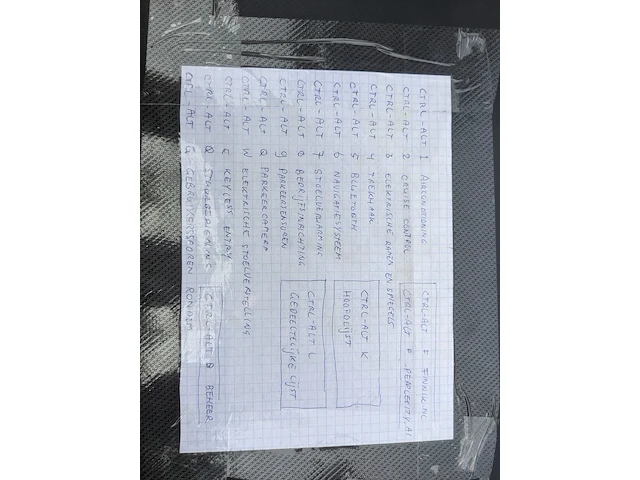 CTRL-ALT 1 AIRCONDITIONING
CTRL-ALT 2 CRUISE CONTROL
CTRL-ALT 3 ELEKTRISCHE RAMEN EN SPIEGELS
CTRL-ALT 4 TREKHAAK
CTRL-ALT 5 BLUETOOTH
CTRL-ALT 6 NAVIGATIESYSTEEM
CTRL-ALT 7 STOELVERWARMING
CTRL-ALT 8 BEDRIJFSINRICHTING
CTRL-ALT 9 PARKEERSENSOREN
CTRL-ALT Q PARKEERCAMERA
CTRL-ALT W ELEKTRISCHE STOELVERSTELLING
CTRL-ALT E KEYLESS ENTRY
CTRL-ALT
CTRL-ALT G GEBRUIKERSSPOREN RONDOM
CTRL-ALT F FINNIK.NL
CTRL-ALT P PERPLEXITY.AI
CTRL-ALT K
HOOFDLIJST
CTRL-ALT L
GEDEELTELIJKE LIJST
CTRL-ALT B BEHEER